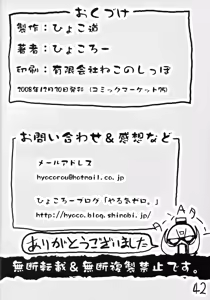 おくづけ
製作：ひょこ道
著者：ひょころー
印刷：有限会社ねこのしっぽ
2008年12月30日発行（コミックマーケット75）
お問い合わせ&感想など
メールアドレス
hyocorou@hotmail.co.jp
ひょころーブログ「やる気ゼロ。」
http://hyoco.blog.shinobi.jp/
ありがとうございました
無断転載&無断複製禁止です。
42